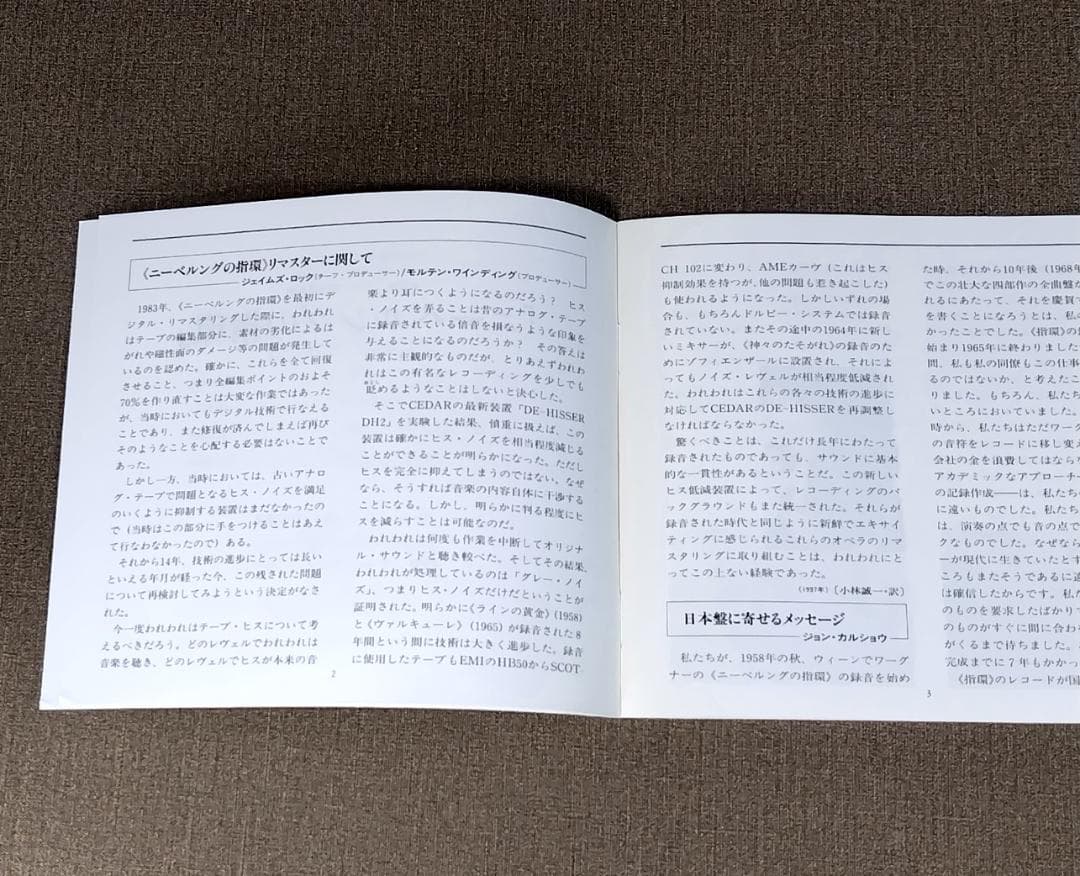 《ニーベルングの指環》リマスターに関して
ジェイムズ・ロック(チーフ・プロデューサー)/モルテン・ワインディング(プロデューサー)
1983年、《ニーベルングの指環》を最初にデ
ジタル・リマスタリングした際に、われわれ
はテープの編集部分に、素材の劣化によるは
がれや磁性面のダメージ等の問題が発生して
いるのを認めた。確かに、これらを全て回復
させること、つまり全編集ポイントのおよそ
70%を作り直すことは大変な作業ではあった
が、当時においてもデジタル技術で行なえる
ことであり、また修復が済んでしまえば再び
そのようなことを心配する必要はないことで
あった。
しかし一方、当時においては、古いアナロ
グ・テープで問題となるヒス・ノイズを満足
のいくように抑制する装置はまだなかったの
で(当時はこの部分に手をつけることはあえ
て行なわなかったので)ある。
それから14年、技術の進歩にとっては長い
といえる年月が経った今、この残された問題
について再検討してみようという決定がなさ
れた。
今一度われわれはテープ・ヒスについて考
えるべきだろう。どのレヴェルでわれわれは
音楽を聴き、どのレヴェルでヒスが本来の音
楽より耳につくようになるのだろう? ヒス
・ノイズを弄ることは昔のアナログ・テープ
に録音されている倍音を損なうような印象を
与えることになるのだろうか? その答えは
非常に主観的なものだが、とりあえずわれわ
れはこの有名なレコーディングを少しでも
貶めるようなことはしないと決心した。
そこでCEDARの最新装置「DE-HISSER
DH2」を実験した結果、慎重に扱えば、この
装置は確かにヒス・ノイズを相当程度減じる
ことができることが明らかになった。ただし
ヒスを完全に抑えてしまうのではない。なぜ
なら、そうすれば音楽の内容自体に干渉する
ことになる。しかし、明らかに判る程度にヒ
スを減らすことは可能なのだ。
われわれは何度も作業を中断してオリジナ
ル・サウンドと聴き較べた。そしてその結果、
われわれが処理しているのは「グレー・ノイ
ズ」、つまりヒス・ノイズだけだということが
証明された。明らかに《ラインの黄金》(1958)
と《ヴァルキューレ》(1965)が録音された8
年間という間に技術は大きく進歩した。録音
に使用したテープもEMIのHB50からSCOT-
2
CH 102に変わり、AMEカーヴ(これはヒス
抑制効果を持つが、他の問題も惹き起こした)
も使われるようになった。しかしいずれの場
合も、もちろんドルビー・システムでは録音
されていない。またその途中の1964年に新し
いミキサーが、《神々のたそがれ》の録音のた
めにゾフィエンザールに設置され、それによ
ってもノイズ・レヴェルが相当程度低減され
た。われわれはこれらの各々の技術の進歩に
対応してCEDARのDE-HISSERを再調整し
なければならなかった。
驚くべきことは、これだけ長年にわたって
録音されたものであっても、サウンドに基本
的な一貫性があるということだ。この新しい
ヒス低減装置によって、レコーディングのバ
ックグラウンドもまた統一された。それらが
録音された時代と同じように新鮮でエキサイ
ティングに感じられるこれらのオペラのリマ
スタリングに取り組むことは、われわれにと
ってこの上ない経験であった。
(1997年)〔小林誠一・訳〕
日本盤に寄せるメッセージ
ジョン・カルショウ
私たちが、1958年の秋、ウィーンでワーグ
ナーの《ニーベルングの指環》の録音を始め
た時、それから10年後(1968年
でこの壮大な四部作の全曲盤が
れるにあたって、それを慶賀す
を書くことになろうとは、私の
かったことでした。《指環》の録
始まり1965年に終わりました
間、私も私の同僚もこの仕事
るのではないか、と考えたこ
りました。もちろん、私たち
いところにおいていました。
時から、私たちはただワーグ
の音符をレコードに移し変え
会社の金を浪費してはならな
アカデミックなアプローチ
の記録作成――は、私たち
に遠いものでした。私たち
は、演奏の点でも音の点で
クなものでした。なぜなら
ーが現代に生きていたとす
ころもまたそうであるに違
は確信したからです。私た
のものを要求したばかりで
のものがすぐに間に合わ
がくるまで待ちました。そ
完成までに7年もかかっ
《指環》のレコードが国
3